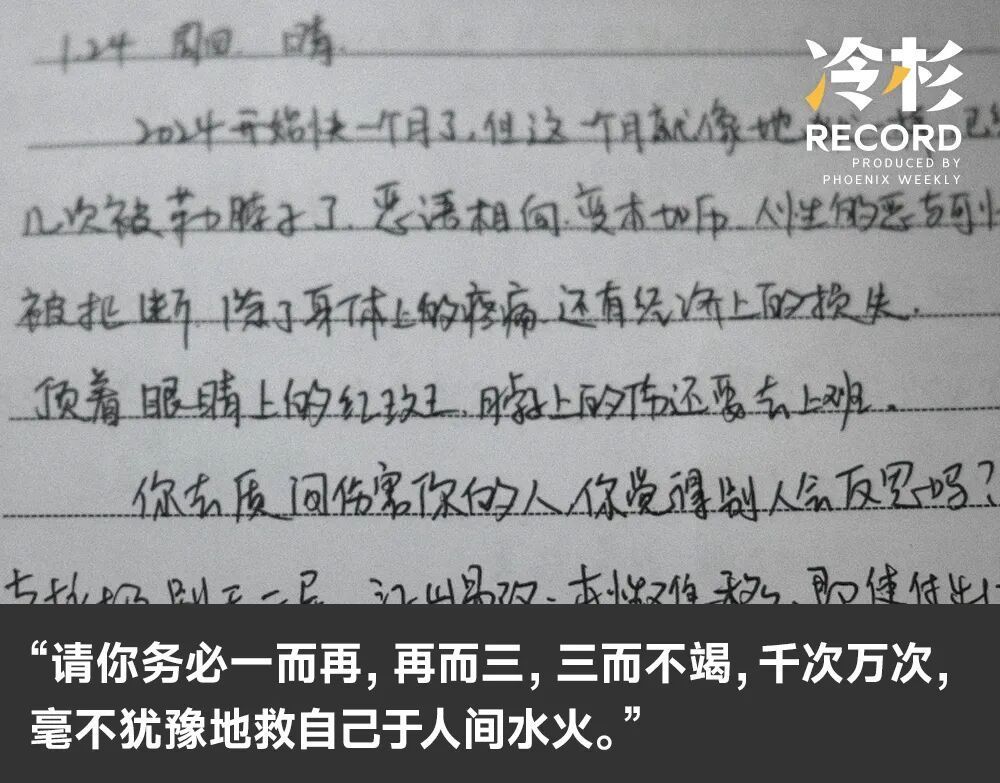 1.24 周四 晴.
冷杉
RECORD
PRODUCED BY
PHOENIX WEEKLY
2024开始快一个月了,但这一个月就像地 已
几次被勒脖子了、恶语相向、变本加厉、人性的恶与可
被 断、除了身体上的疼痛、还有经济上的损失.
顶着眼睛上的红 、脖子上的伤还要去上班。
你去质问伤害你的人,你觉得别人会反思吗?
江山易改、本性难移、即使付出
“请你务必一而再,再而三,三而不竭,千次万次,
毫不犹豫地救自己于人间水火。”